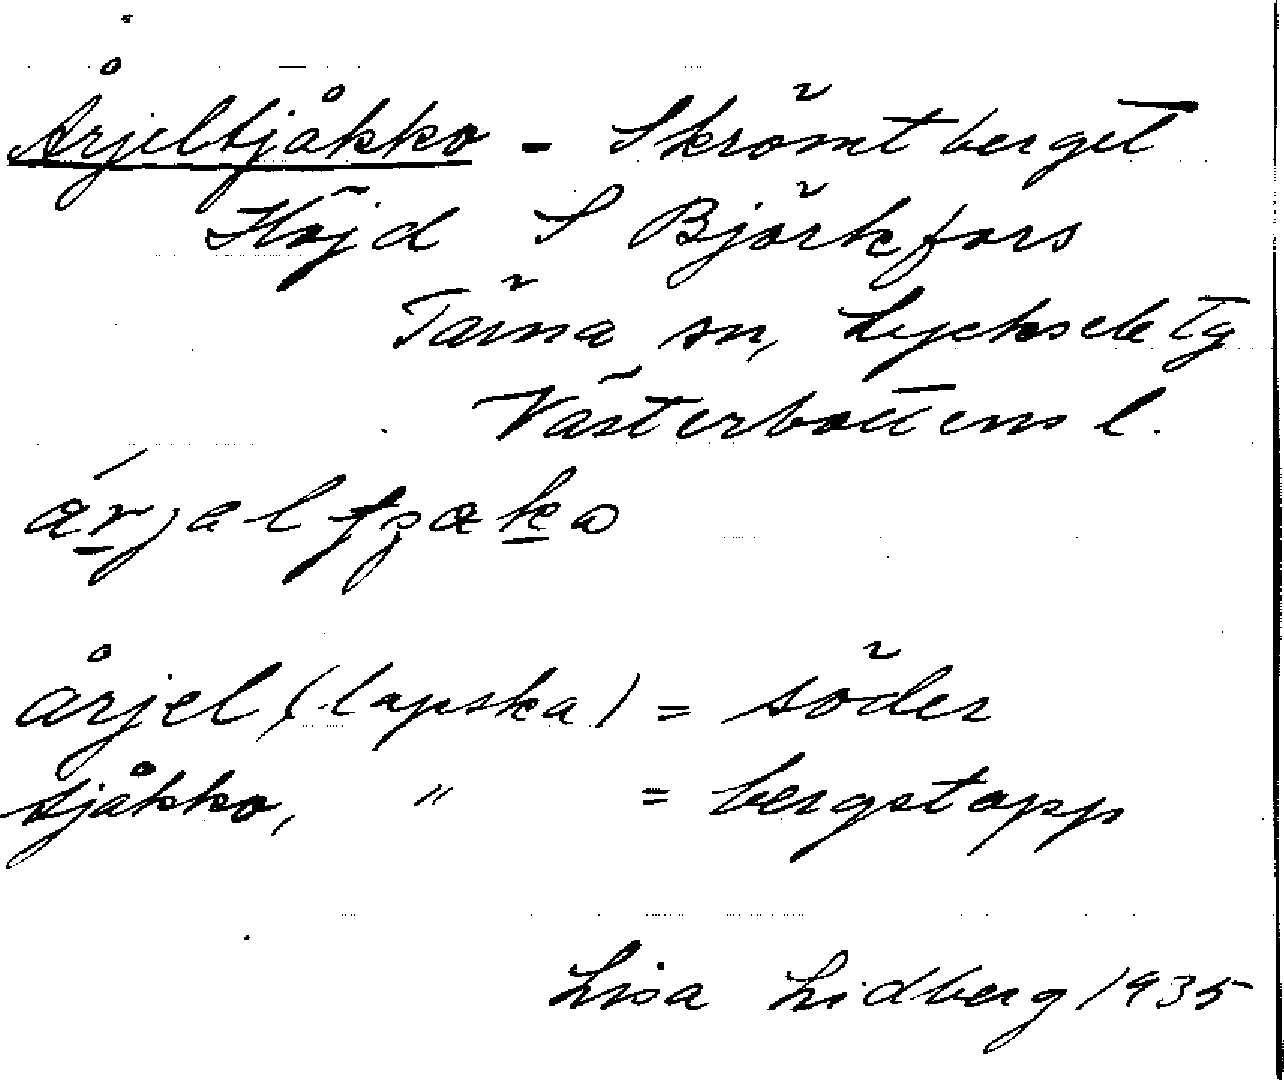 Årjeltjåkko - Skrömtberget
Höjd S Björkfors
Tärna sn, Lycksele tg
Västerbottens l.
årjel (lapska) = söder
tjåkko, " = bergstopp
Lisa Lidberg 1935